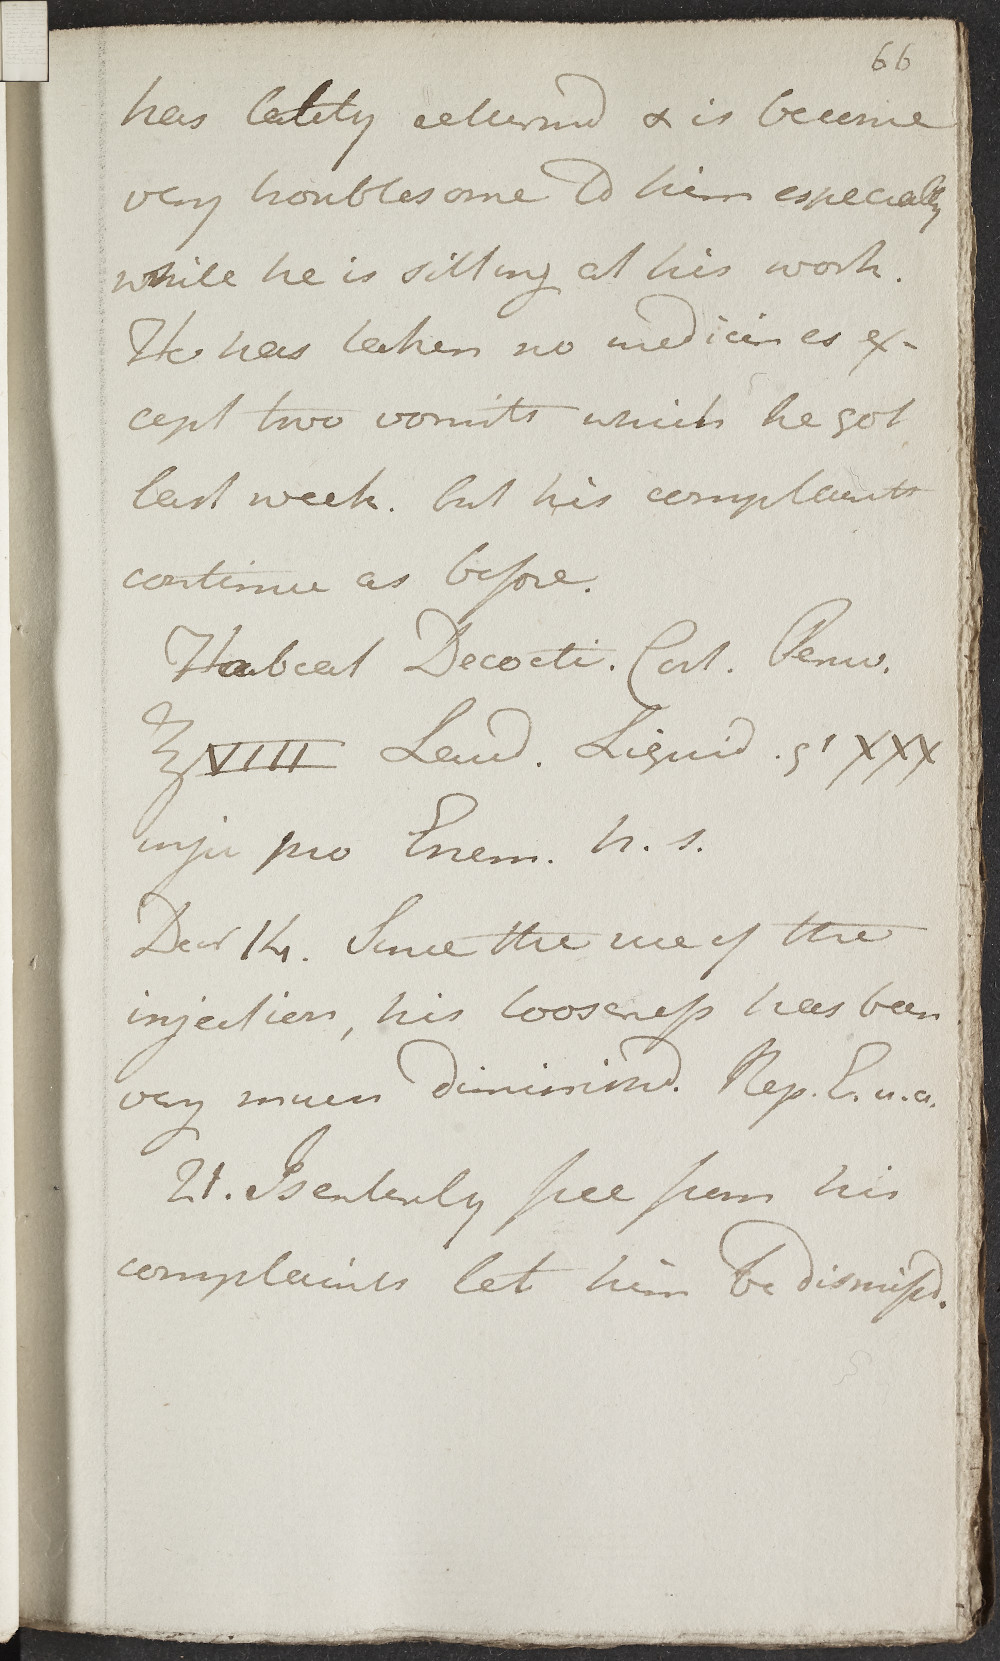 66
has lately returnd & is become
very troublesome to him especially
while he is sitting at his work.
He has taken no medicines ex-
cept two vomits which he got
last week. but his complaints
continue as before.
Habeat Decocti. Cort. Peruv.
℥VIII Laud. Liquid. gt XXX
pro Enem. h. s.
Decr 14. Since the use of the
injection, his looseness has been
very much diminisd. Rep. E. u. a.
21. Is entirely free from his
complaints let him be dismissd.